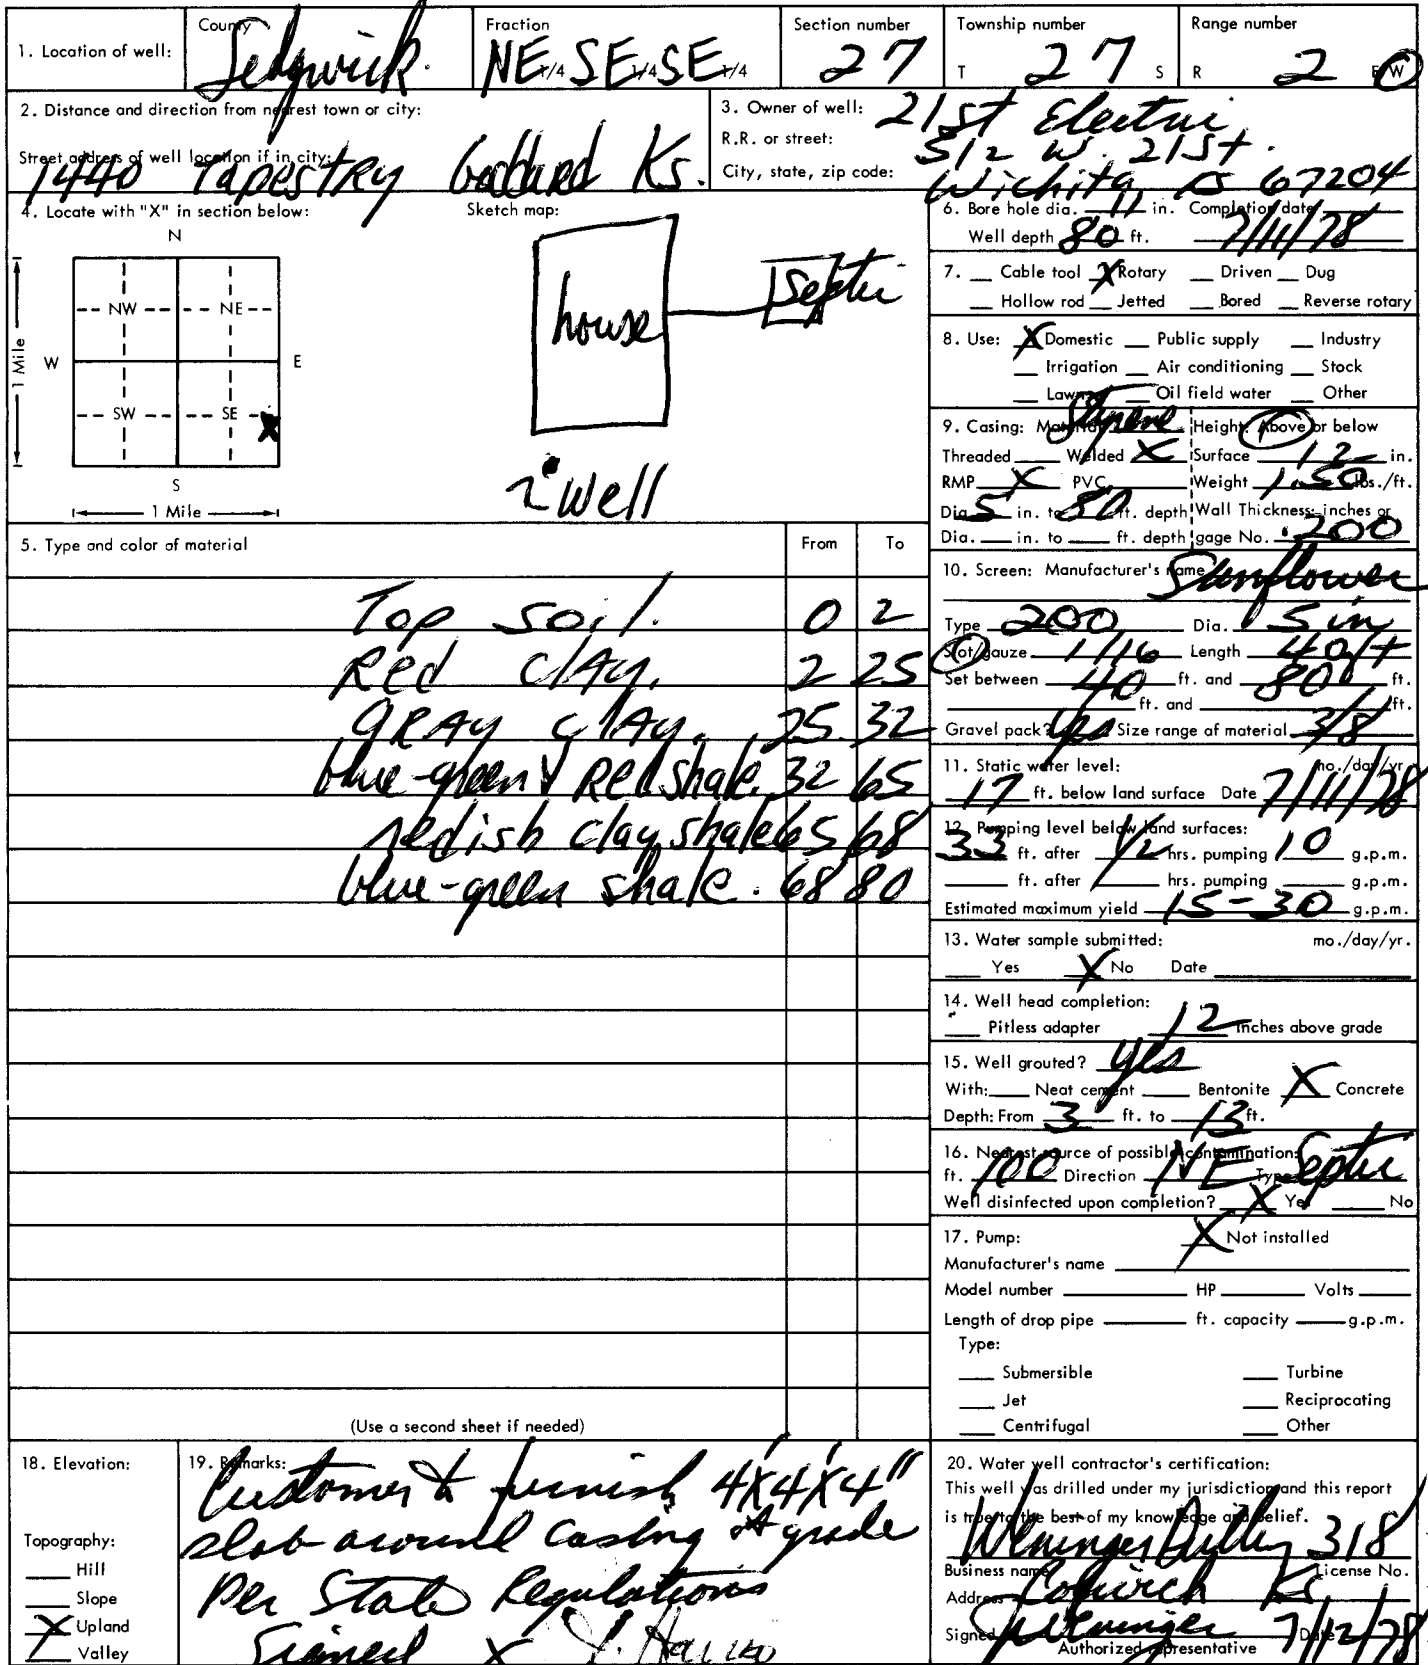 1. Location of well:
County
Sedgwick.
Fraction
NE 1/4 SE 1/4 SE 1/4
Section number
27
Township number
T 27 S
Range number
R 2 E W
2. Distance and direction from nearest town or city:
Street address of well location if in city:
1440 Tapestry Goddard Ks.
3. Owner of well: 21st Electric
R.R. or street: 512 W. 21st.
City, state, zip code: Wichita, Ks 67204
4. Locate with "X" in section below:
N
NW NE
W E
SW SE X
S
1 Mile
1 Mile
Sketch map:
house
septic
Well
5. Type and color of material From To
Top soil. 0 2
Red clay. 2 25
GRAY clay. 25 32
blue-green & Red shale 32 65
redish clay shale 65 68
blue-green shale. 68 80
(Use a second sheet if needed)
6. Bore hole dia. 11 in. Completion date
Well depth 80 ft. 7/11/78
7. Cable tool X Rotary Driven Dug
Hollow rod Jetted Bored Reverse rotary
8. Use: X Domestic Public supply Industry
Irrigation Air conditioning Stock
Lawn Oil field water Other
9. Casing: Material Styrene Height: Above or below
Threaded Welded X Surface 12 in.
RMP X PVC Weight 1.50 lbs./ft.
Dia. 5 in. to 80 ft. depth Wall Thickness: inches or
Dia. in. to ft. depth gage No. .200
10. Screen: Manufacturer's name Sunflower
Type 200 Dia. 5 in
Slot/gauze 1/16 Length 40 ft
Set between 40 ft. and 80 ft.
ft. and ft.
Gravel pack? yes Size range of material 3/8
11. Static water level: mo./day/yr.
17 ft. below land surface Date 7/11/78
12. Pumping level below land surfaces:
33 ft. after 1/2 hrs. pumping 10 g.p.m.
ft. after hrs. pumping g.p.m.
Estimated maximum yield 15-30 g.p.m.
13. Water sample submitted: mo./day/yr.
Yes X No Date
14. Well head completion:
Pitless adapter 12 Inches above grade
15. Well grouted? yes
With: Neat cement Bentonite X Concrete
Depth: From 3 ft. to 13 ft.
16. Nearest source of possible contamination:
ft. 100 Direction NE Type Septic
Well disinfected upon completion? X Yes No
17. Pump: X Not installed
Manufacturer's name
Model number HP Volts
Length of drop pipe ft. capacity g.p.m.
Type:
Submersible Turbine
Jet Reciprocating
Centrifugal Other
18. Elevation:
Topography:
Hill
Slope
X Upland
Valley
19. Remarks:
Customer to furnish 4'x4'x4"
slab around casing at grade
Per State Regulations
Signed X
20. Water well contractor's certification:
This well was drilled under my jurisdiction and this report
is true to the best of my knowledge and belief.
Weninger Drilling 318
Business name License No.
Address Colwich Ks
Signed Weninger Date 7/12/78
Authorized representative